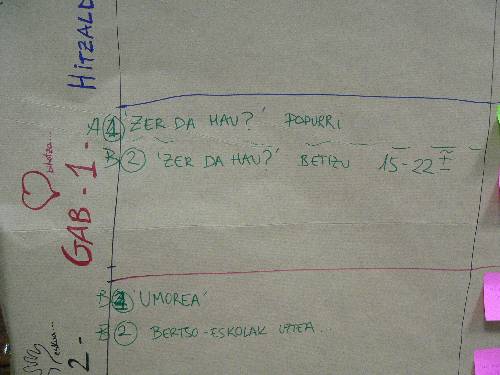 HITZALD
A 1 'ZER DA HAU?' POPURRI
B 2 'ZER DA HAU?' BETIZU 15-22 ±
GAB-1-
bihotza...
B 1 'UMOREA'
B 2 BERTSO-ESKOLAK UZTEA...
2-